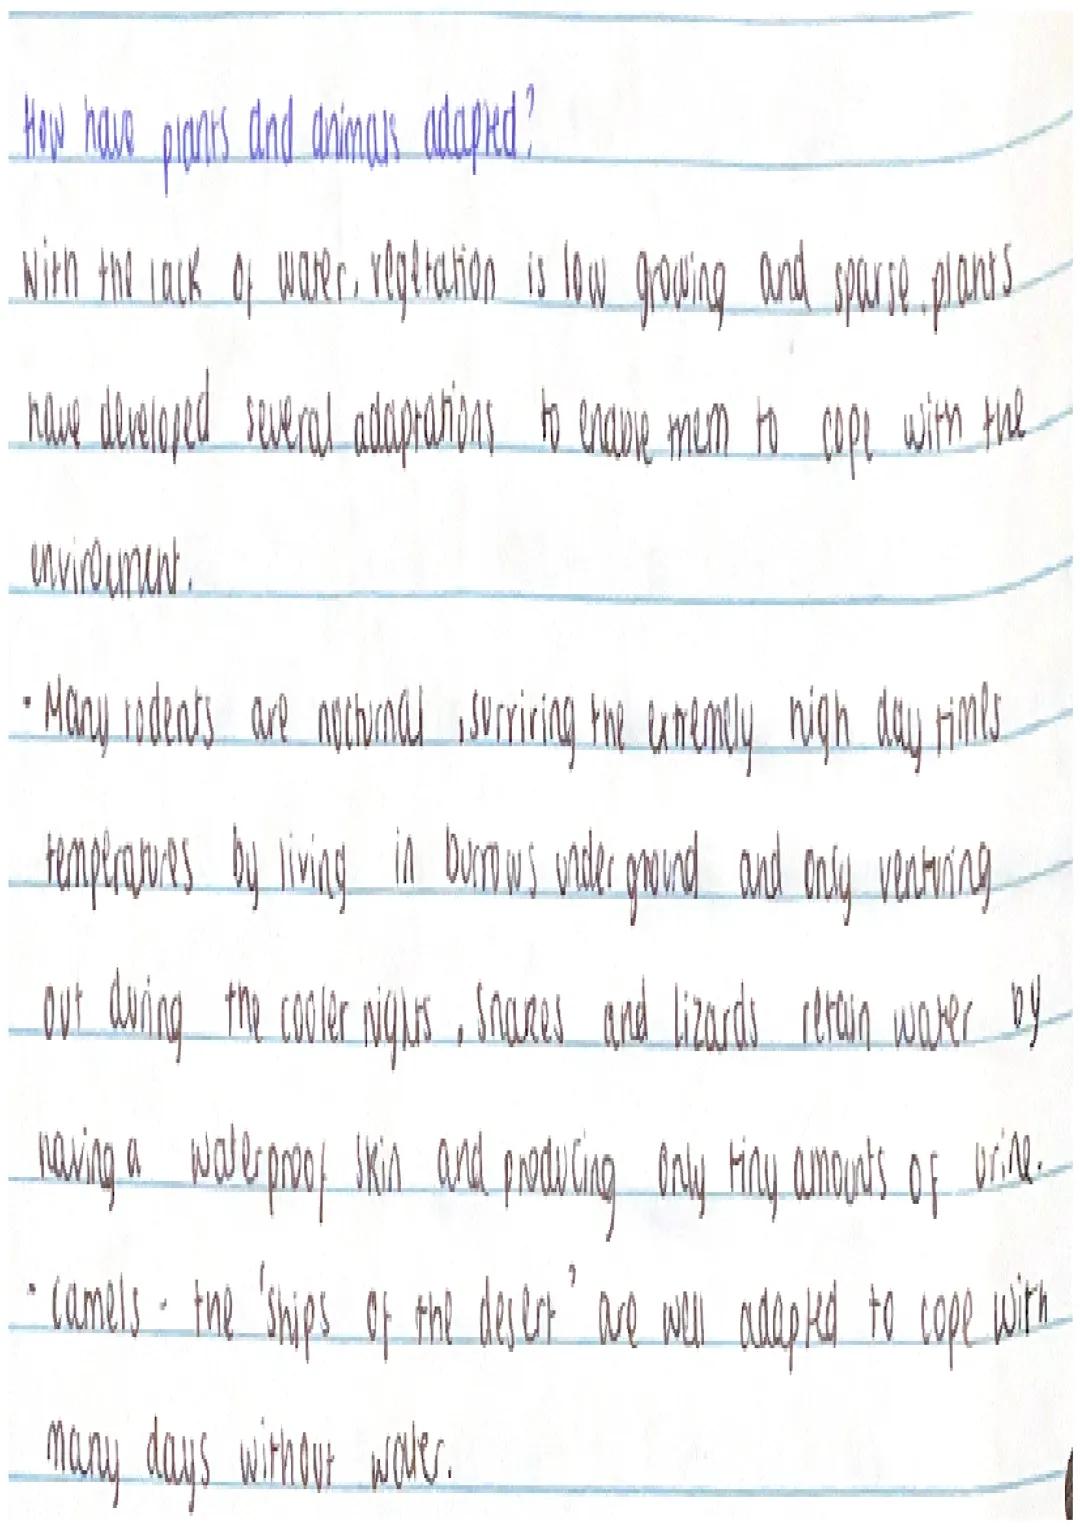 How have plants and animals adapted?
with the lack of water, vegetation is low growing and sparse. plants
have developed several adaptations to enable them to cope with the
enviroement.
• Many rodents are nocturnal, surviving the extremely high day times
temperatures by living in burrows under ground and only venturing
out during the cooler nights, Snakes and Lizards retain water by
having a waterproof skin and producing only tiny amounts of urine.
• Camels - the 'ships of the desert' are well adapted to cope with
many days without water.